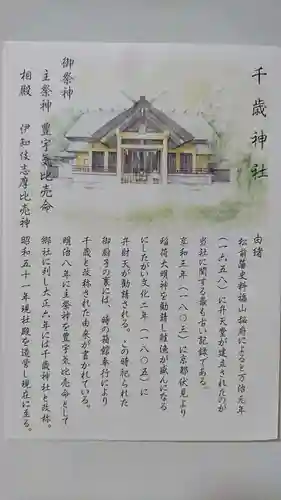 千歳神社
御祭神
主祭神 豊宇気比売命
相殿 伊知伎志摩比売神
由緒
松前藩史料福山秘府によると万治元年
(一六五八)に弁天堂が建立されたのが
当社に関する最も古い記録である。
享和三年(一八〇三)に京都伏見より
稲荷大明神を勧請し鮭漁が盛んになる
にしたがい文化二年(一八〇五)に
弁財天が勧請される。この時祀られた
御厨子の裏には、時の箱館奉行により
千歳と改称された由来が書かれている。
明治八年に主祭神を豊宇気比売命として
郷社に列し大正六年には千歳神社と改称。
昭和五十一年現社殿を造営し現在に至る。